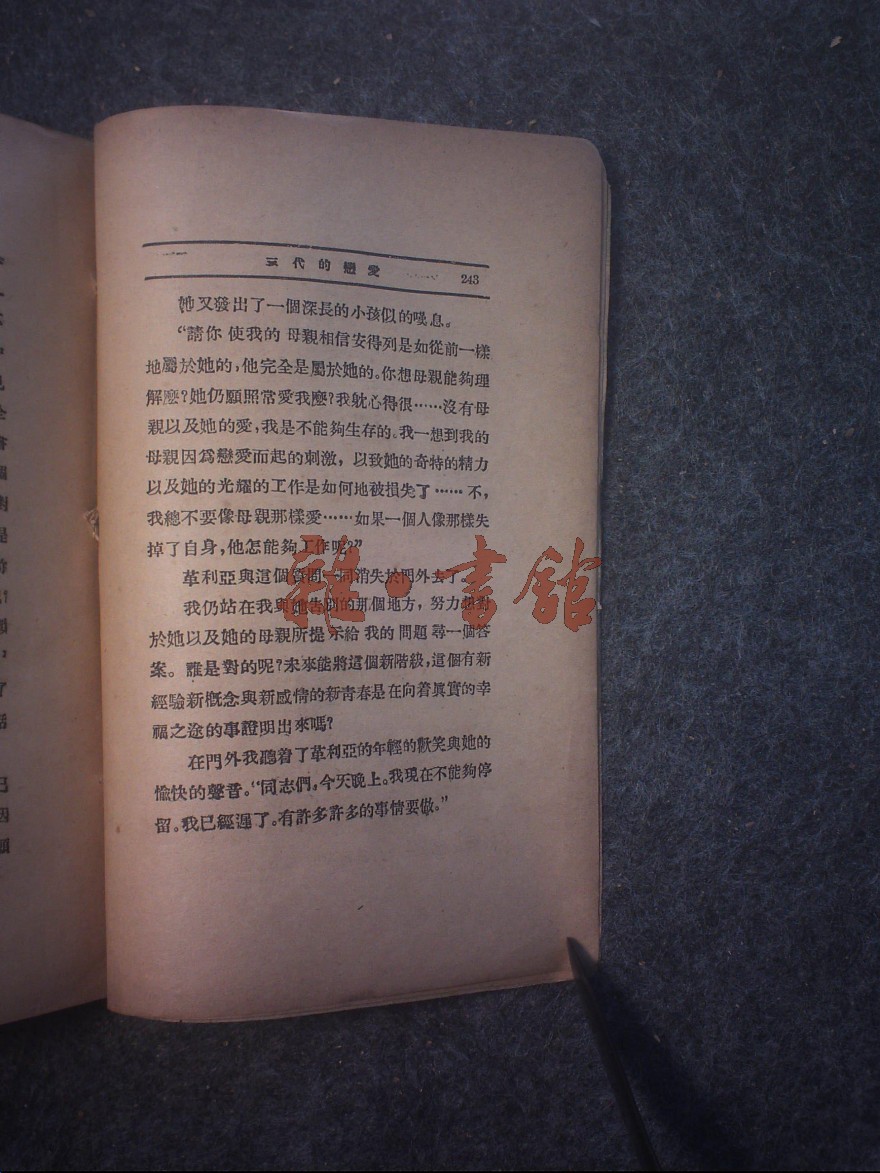 三代的戀愛 243
她又發出了一個深長的小孩似的嘆息。
“請你使我的母親相信安得列是如從前一樣
地屬於她的,他完全是屬於她的。你想母親能夠理
解麽?她仍願照常愛我麽?我躭心得很……沒有母
親以及她的愛,我是不能夠生存的。我一想到我的
母親因為戀愛而起的刺激,以致她的奇特的精力
以及她的光耀的工作是如何地被損失了……不,
我總不要像母親那樣愛……如果一個人像那樣失
掉了自身,他怎能夠工作呢?”
革利亞與這個質問一同消失於門外去了。
我仍站在我與她告別的那個地方,努力想對
於她以及她的母親所提示給我的問題尋一個答
案。誰是對的呢?未來能將這個新階級,這個有新
經驗新概念與新感情的新青春是在向着眞實的幸
福之途的事證明出來嗎?
在門外我聽着了革利亞的年輕的歡笑與她的
愉快的聲音。“同志們,今天晚上。我現在不能夠停
留。我已經遲了。有許多許多的事情要做。”
雜·書館